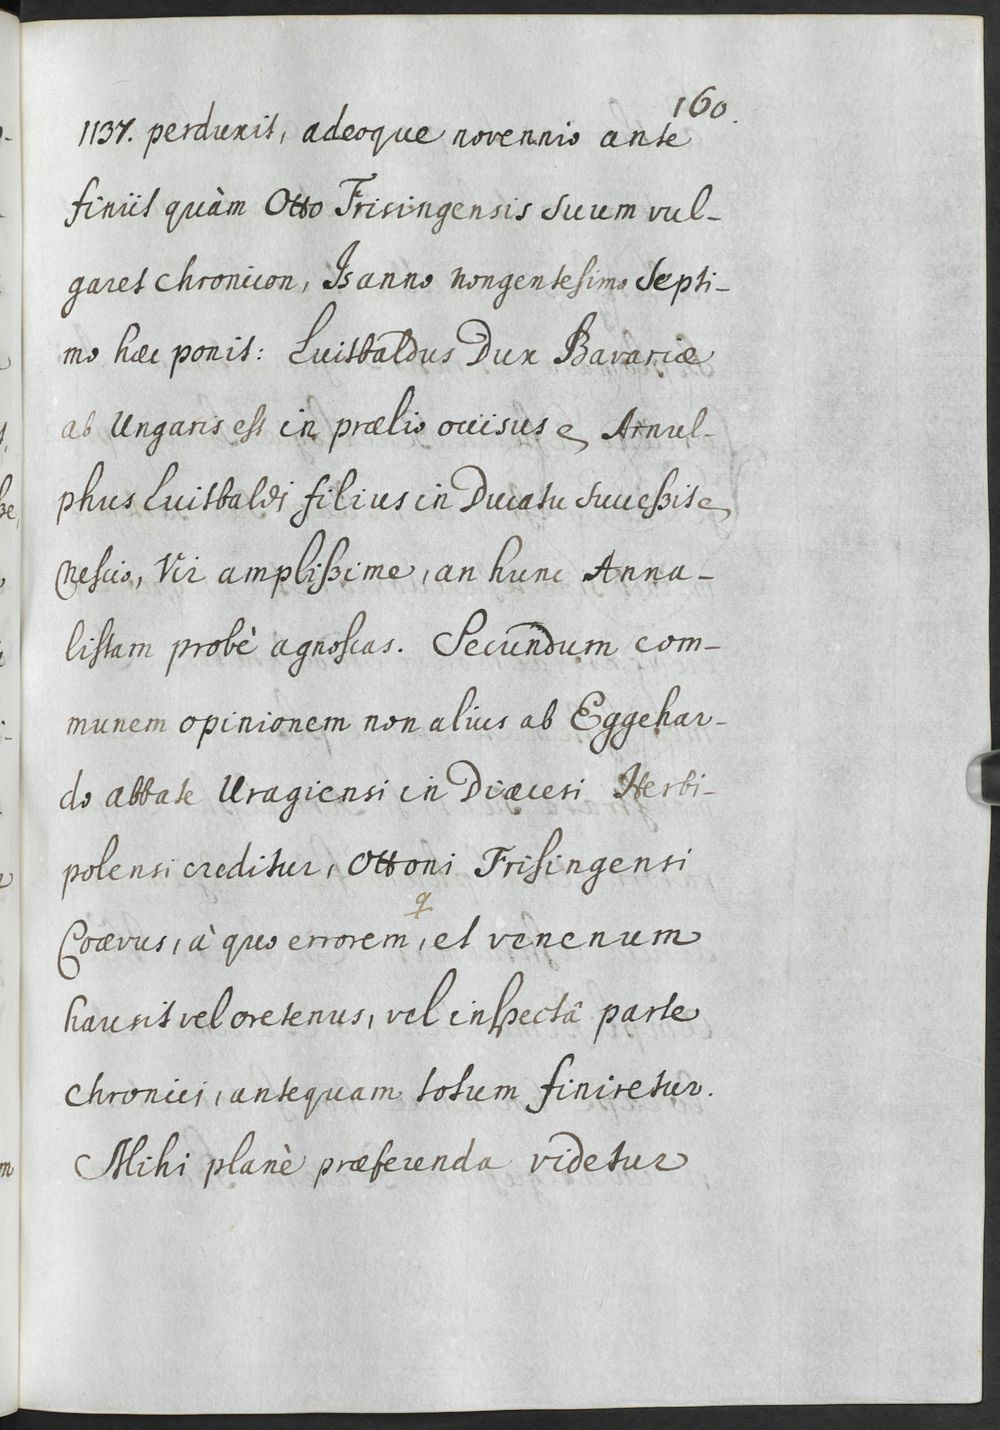 160.
1137. perduxit, adeoque novennio ante
finiit quàm Otto Frisingensis suum vul-
garet chronicon, Is anno nongentesimo septi-
mo hæc ponit: Luitbaldus Dux Bavariæ
ab Ungaris est in prælio occisus Arnul-
phus Luitbaldi filius in Ducatu successit
nescio, Vir amplissime, an hunc Anna-
listam probè agnoscas. Secundum com-
munem opinionem non alius ab Eggehar-
do abbate Uragiensi in Diæcesi Herbi-
polensi creditur, Ottoni Frisingensi
q
Coævus, à quo errorem, et venenum
hausit vel oretenus, vel inspectâ parte
chronici, antequam totum finiretur.
Mihi planè præferenda videtur